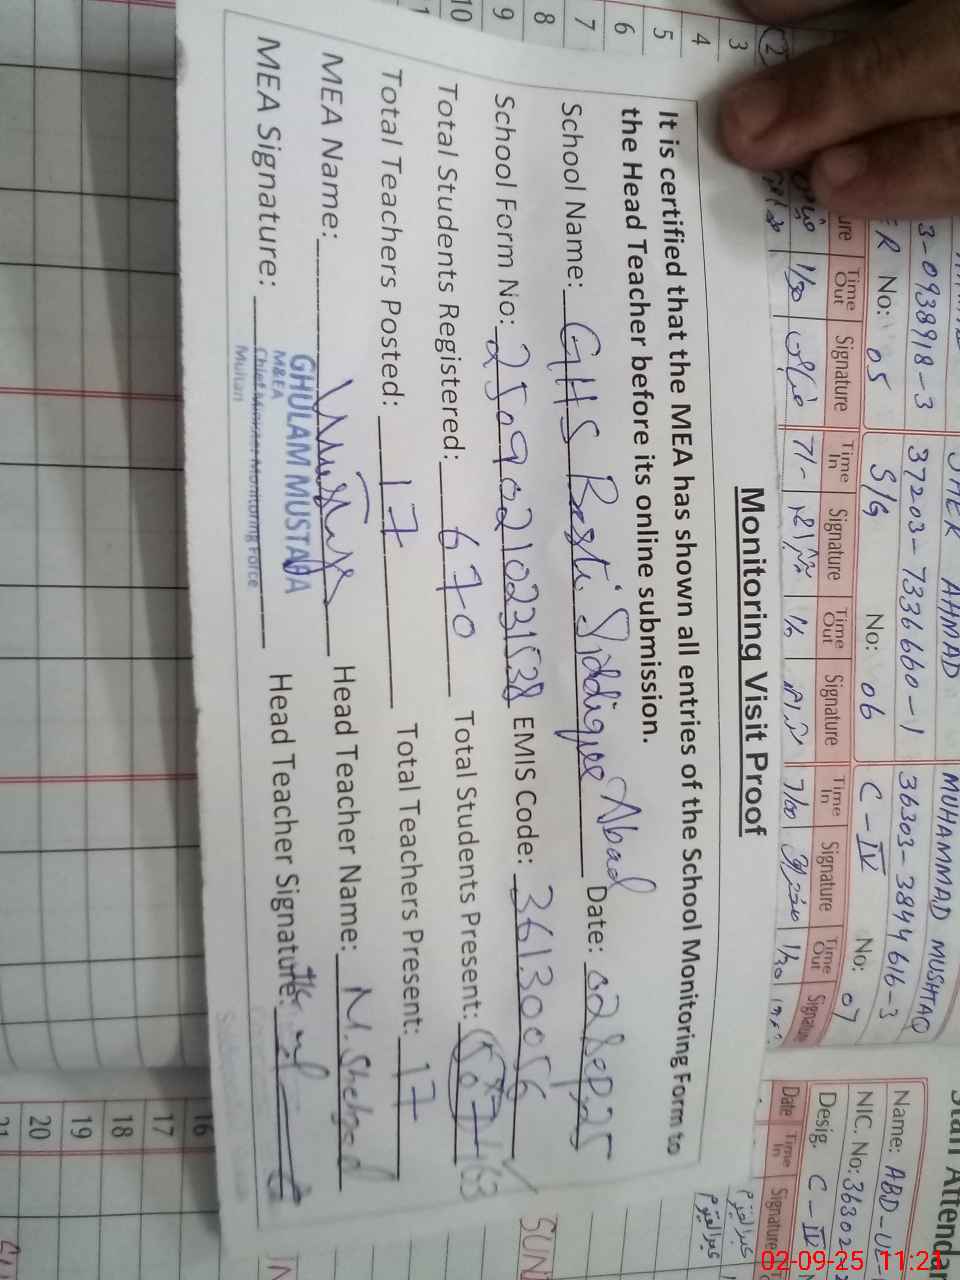 Monitoring Visit Proof
It is certified that the MEA has shown all entries of the School Monitoring Form to
the Head Teacher before its online submission.
School Name: GHS Basti Siddique Abad Date: 02 Sep, 25
School Form No: 25090210231538 EMIS Code: 36130056
Total Students Registered: 670 Total Students Present: 507
Total Teachers Posted: 17 Total Teachers Present: 17
MEA Name: Head Teacher Name: M. Shehzad
MEA Signature: Head Teacher Signature:
GHULAM MUSTAFA
M&EA
Chief Minister Monitoring Force
Multan
AHMAD
MUHAMMAD MUSHTAQ
3-0938918-3
37203-7336660-1
36303-3844616-3
No: 05
S/G No: 06
C-IV No: 07
Time Out Signature Time In Signature Time Out Signature Time In Signature Time Out Signature
Staff Attendan
Name: ABD-UL-
NIC. No: 36302
Desig. C-IV
Date Time In Signature
2
3
4
5
6
7
8
9
10
16
17
18
19
20
21
SUN
02-09-25 11:21